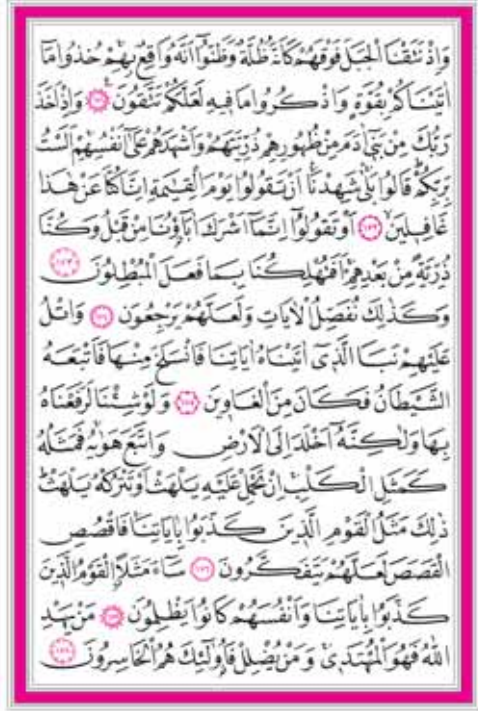 وَاِذْ نَتَقْنَا الْجَبَلَ فَوْقَهُمْ كَاَنَّهُ ظُلَّةٌ وَظَنُّٓوا اَنَّهُ وَاقِعٌ بِهِمْ خُذُوا مَٓا
اٰتَيْنَاكُمْ بِقُوَّةٍ وَاذْكُرُوا مَا فِيهِ لَعَلَّكُمْ تَتَّقُونَ ﴿١٧١﴾ وَاِذْ اَخَذَ
رَبُّكَ مِنْ بَنِٓي اٰدَمَ مِنْ ظُهُورِهِمْ ذُرِّيَّتَهُمْ وَاَشْهَدَهُمْ عَلٰٓى اَنْفُسِهِمْ اَلَسْتُ
بِرَبِّكُمْ قَالُوا بَلٰى شَهِدْنَا اَنْ تَقُولُوا يَوْمَ الْقِيٰمَةِ اِنَّا كُنَّا عَنْ هٰذَا
غَافِلِينَ ﴿١٧٢﴾ اَوْ تَقُولُٓوا اِنَّمَٓا اَشْرَكَ اٰبَٓاؤُنَا مِنْ قَبْلُ وَكُنَّا
ذُرِّيَّةً مِنْ بَعْدِهِمْ اَفَتُهْلِكُنَا بِمَا فَعَلَ الْمُبْطِلُونَ ﴿١٧٣﴾
وَكَذٰلِكَ نُفَصِّلُ الْاٰيَاتِ وَلَعَلَّهُمْ يَرْجِعُونَ ﴿١٧٤﴾ وَاتْلُ
عَلَيْهِمْ نَبَاَ الَّذِٓي اٰتَيْنَاهُ اٰيَاتِنَا فَانْسَلَخَ مِنْهَا فَاَتْبَعَهُ
الشَّيْطَانُ فَكَانَ مِنَ الْغَاوِينَ ﴿١٧٥﴾ وَلَوْ شِئْنَا لَرَفَعْنَاهُ
بِهَا وَلٰكِنَّهُٓ اَخْلَدَ اِلَى الْاَرْضِ وَاتَّبَعَ هَوٰيهُ فَمَثَلُهُ
كَمَثَلِ الْكَلْبِ اِنْ تَحْمِلْ عَلَيْهِ يَلْهَثْ اَوْ تَتْرُكْهُ يَلْهَثْ
ذٰلِكَ مَثَلُ الْقَوْمِ الَّذِينَ كَذَّبُوا بِاٰيَاتِنَا فَاقْصُصِ
الْقَصَصَ لَعَلَّهُمْ يَتَفَكَّرُونَ ﴿١٧٦﴾ سَٓاءَ مَثَلًا الْقَوْمُ الَّذِينَ
كَذَّبُوا بِاٰيَاتِنَا وَاَنْفُسَهُمْ كَانُوا يَظْلِمُونَ ﴿١٧٧﴾ مَنْ يَهْدِ
اللّٰهُ فَهُوَ الْمُهْتَدِي وَمَنْ يُضْلِلْ فَاُولٰٓئِكَ هُمُ الْخَاسِرُونَ ﴿١٧٨﴾